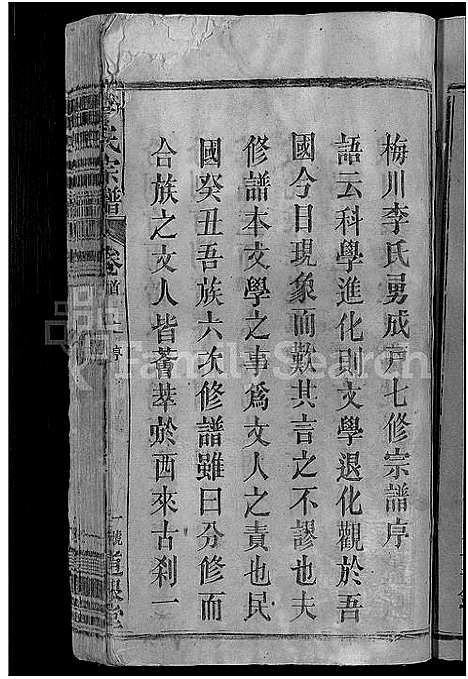 梅川李氏勇成戶七修宗譜序
語云科學進化則文學退化觀於吾
國今日現象而歎其言之不謬也夫
修譜本文學之事爲文人之責也民
國癸丑吾族六次修譜雖曰分修而
合族之文人皆薈萃於西來古剎一
氏宗譜
卷首上
一號
FamilySearch